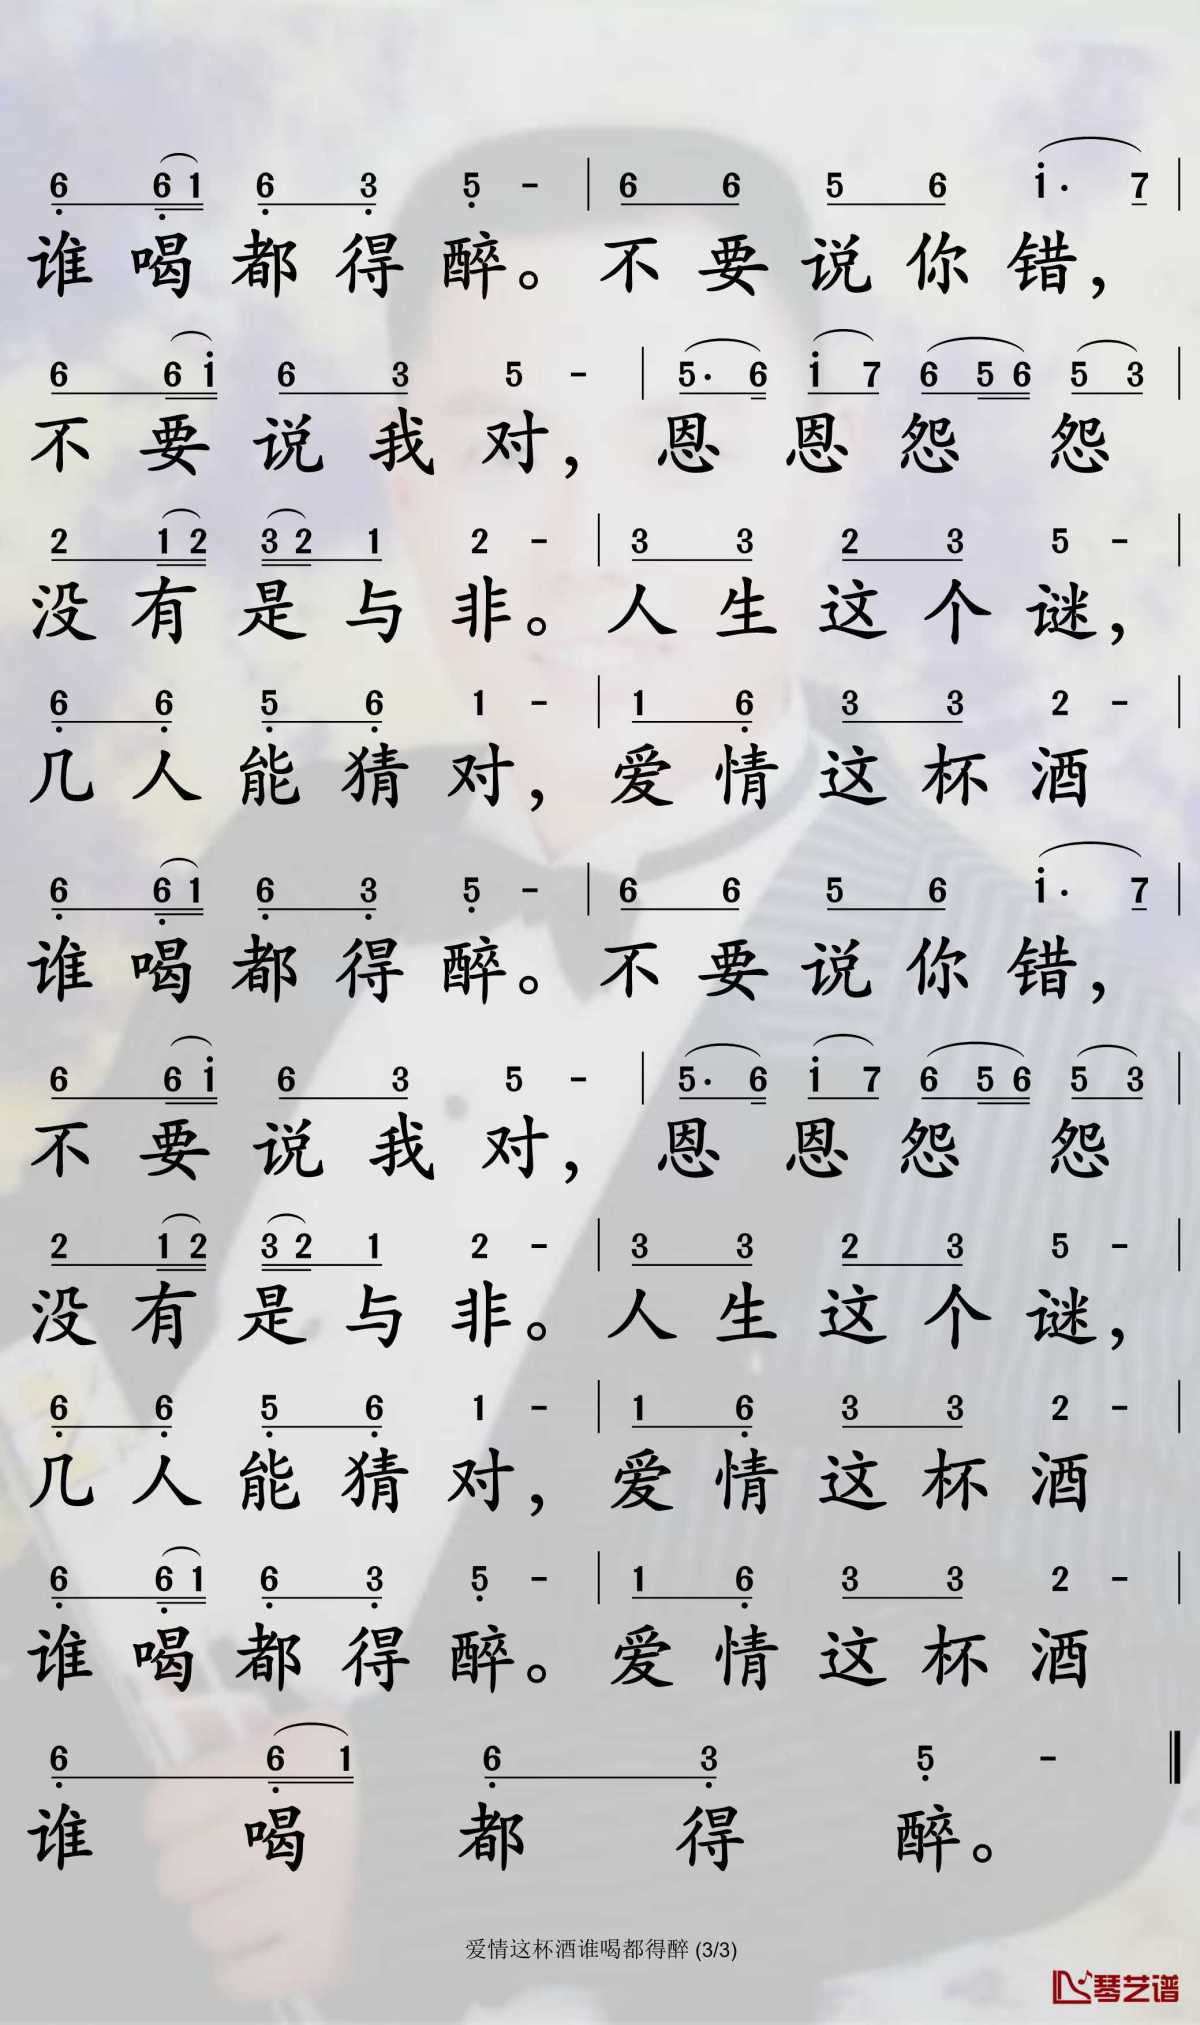 6 6 1 6 3 5 - | 6 6 5 6 i· 7 |
谁喝都得醉。不要说你错，
6 6 i 6 3 5 - | 5· 6 i 7 6 5 6 5 3 |
不要说我对，恩恩怨怨
2 1 2 3 2 1 2 - | 3 3 2 3 5 - |
没有是与非。人生这个谜，
6 6 5 6 1 - | 1 6 3 3 2 - |
几人能猜对，爱情这杯酒
6 6 1 6 3 5 - | 6 6 5 6 i· 7 |
谁喝都得醉。不要说你错，
6 6 i 6 3 5 - | 5· 6 i 7 6 5 6 5 3 |
不要说我对，恩恩怨怨
2 1 2 3 2 1 2 - | 3 3 2 3 5 - |
没有是与非。人生这个谜，
6 6 5 6 1 - | 1 6 3 3 2 - |
几人能猜对，爱情这杯酒
6 6 1 6 3 5 - | 1 6 3 3 2 - |
谁喝都得醉。爱情这杯酒
6 6 1 6 3 5 - ‖
谁喝都得醉。
爱情这杯酒谁喝都得醉 (3/3)
琴艺谱